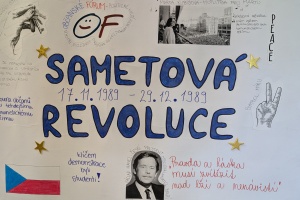 OBČANSKÉ FÓRUM
OF
PEACE
SAMETOVÁ
17.11.1989 - 29.12.1989
REVOLUCE
Klíčem
demonstrace
byli
studenti!
„Pravda a láska
musí zvítězit
nad lží a nenávistí"